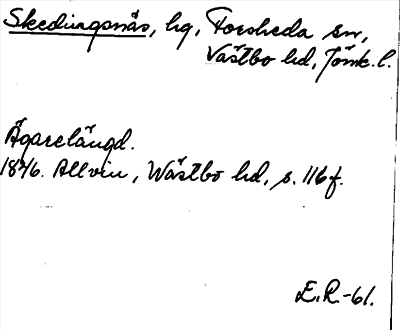 Skedingsnäs, hg, Forsheda sn,
Västbo hd, Jönk. l.
Ägarelängd.
1846. Allvin, Wästbo hd, s. 116 f.
E.R.-61.